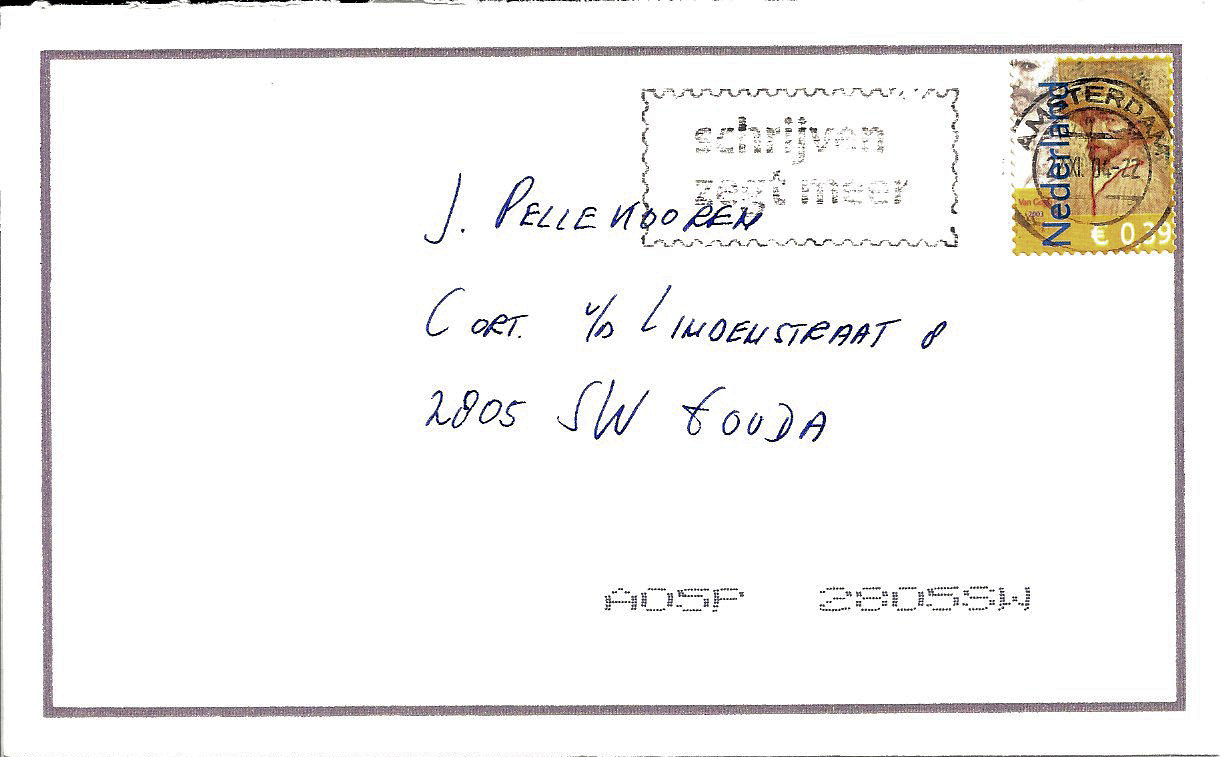 schrijven
zegt meer
AMSTERDAM
XI 04-22
Nederland
Van Gogh
2003
€ 0,39
J. PELLEKOOREN
CORT. v/d LINDENSTRAAT 8
2805 SW GOUDA
AOSP 2805SW